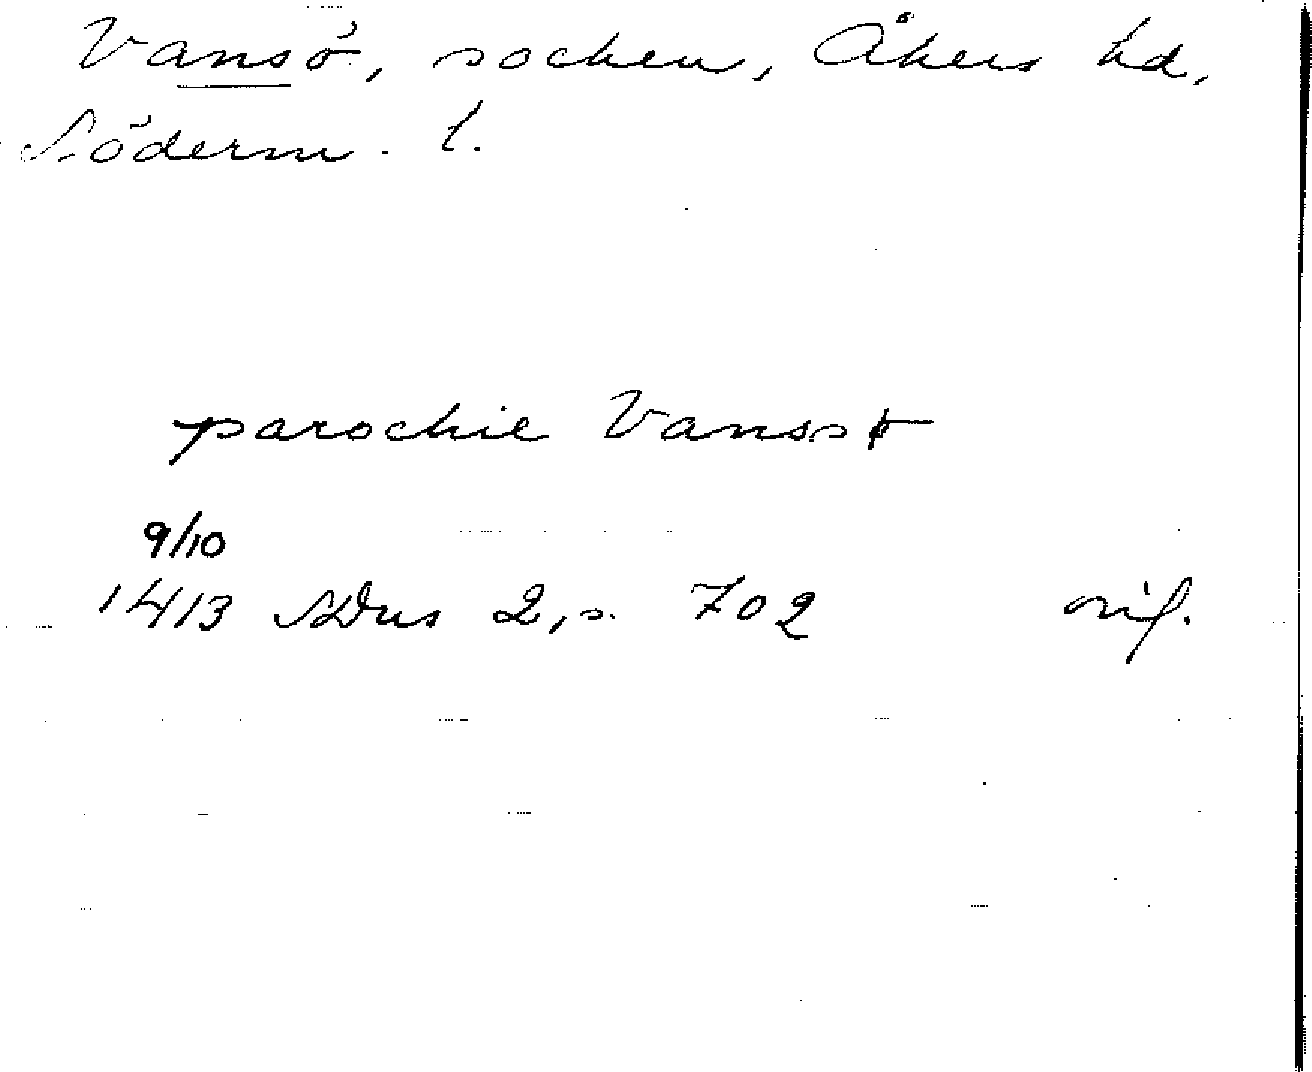 Vansö, socken, Åkers hd,
Söderm. l.
parochie Vanssø
9/10
1413 SDns 2, s. 702 orig.